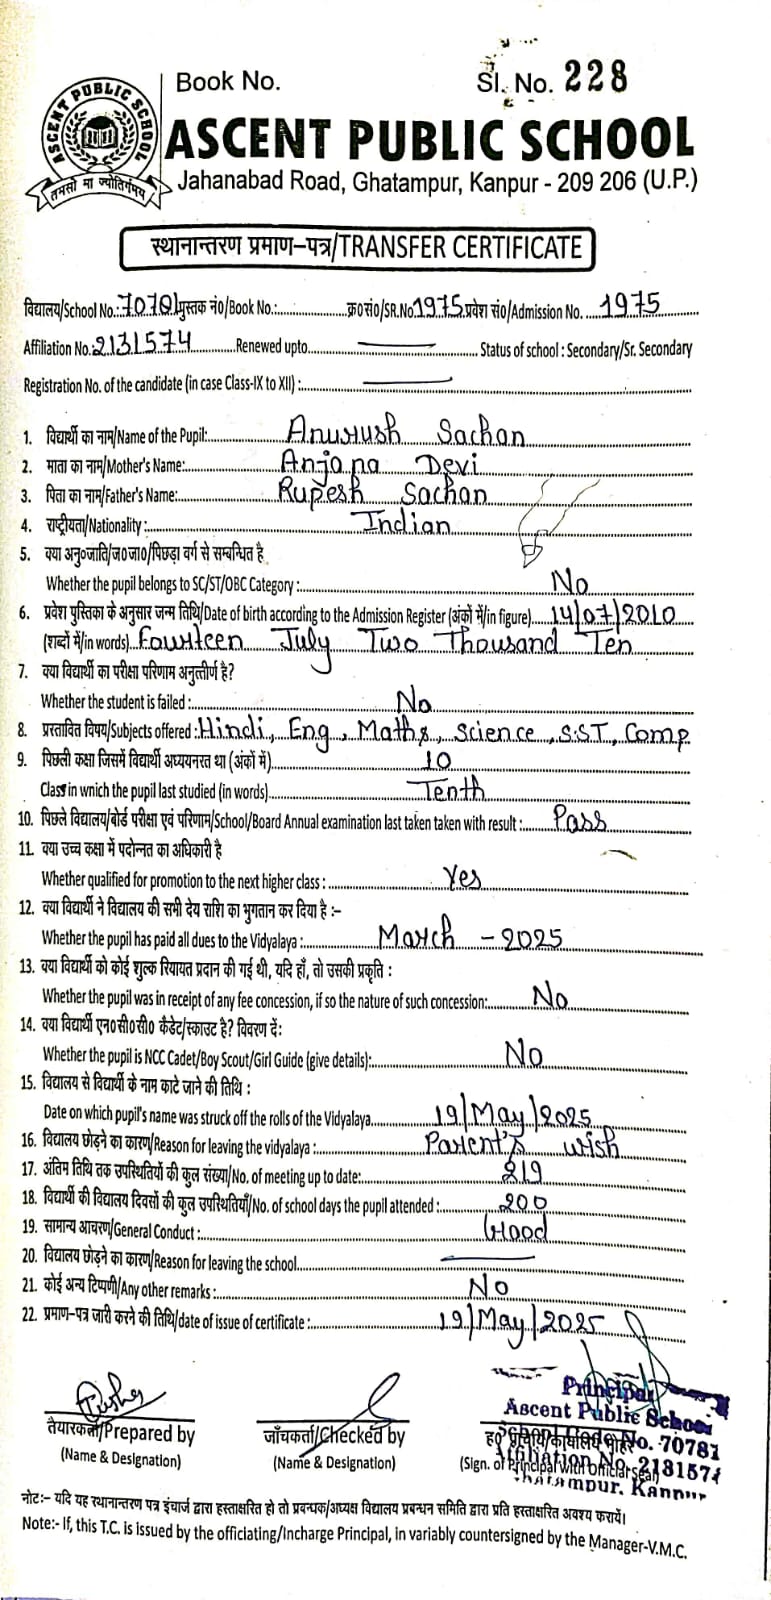 Book No. Sl. No. 228
ASCENT PUBLIC SCHOOL
तमसो मा ज्योतिर्गमय
ASCENT PUBLIC SCHOOL
Jahanabad Road, Ghatampur, Kanpur - 209 206 (U.P.)
स्थानान्तरण प्रमाण-पत्र/TRANSFER CERTIFICATE
विद्यालय/School No.: पुस्तक नं०/Book No.: क्र०सं०/SR.No. 1975 प्रवेश सं०/Admission No. 1975
Affiliation No. 2131574 Renewed upto Status of school : Secondary/Sr. Secondary
Registration No. of the candidate (in case Class-IX to XII) :
1. विद्यार्थी का नाम/Name of the Pupil: Anurush Sachan
2. माता का नाम/Mother's Name: Anjana Devi
3. पिता का नाम/Father's Name: Rupesh Sachan
4. राष्ट्रीयता/Nationality : Indian
5. क्या अनु०जाति/ज०जा०/पिछड़ा वर्ग से सम्बन्धित है
Whether the pupil belongs to SC/ST/OBC Category : No
6. प्रवेश पुस्तिका के अनुसार जन्म तिथि/Date of birth according to the Admission Register (अंकों में/in figure) 14/07/2010
(शब्दों में/in words) Fourteen July Two Thousand Ten
7. क्या विद्यार्थी का परीक्षा परिणाम अनुत्तीर्ण है?
Whether the student is failed : No
8. प्रस्तावित विषय/Subjects offered : Hindi, Eng, Maths, Science, S.ST, Comp
9. पिछली कक्षा जिसमें विद्यार्थी अध्ययनरत था (अंकों में) 10
Class in wnich the pupil last studied (in words) Tenth
10. पिछले विद्यालय/बोर्ड परीक्षा एवं परिणाम/School/Board Annual examination last taken taken with result : Pass
11. क्या उच्च कक्षा में पदोन्नत का अधिकारी है
Whether qualified for promotion to the next higher class : Yes
12. क्या विद्यार्थी ने विद्यालय की सभी देय राशि का भुगतान कर दिया है :-
Whether the pupil has paid all dues to the Vidyalaya : March - 2025
13. क्या विद्यार्थी को कोई शुल्क रियायत प्रदान की गई थी, यदि हाँ, तो उसकी प्रकृति :
Whether the pupil was in receipt of any fee concession, if so the nature of such concession: No
14. क्या विद्यार्थी एन०सी०सी० कैडेट/स्काउट है? विवरण दें:
Whether the pupil is NCC Cadet/Boy Scout/Girl Guide (give details): No
15. विद्यालय से विद्यार्थी के नाम काटे जाने की तिथि :
Date on which pupil's name was struck off the rolls of the Vidyalaya 19/May/2025
16. विद्यालय छोड़ने का कारण/Reason for leaving the vidyalaya : Parent's wish
17. अंतिम तिथि तक उपस्थितियों की कुल संख्या/No. of meeting up to date: 219
18. विद्यार्थी की विद्यालय दिवसों की कुल उपस्थितियाँ/No. of school days the pupil attended : 200
19. सामान्य आचरण/General Conduct : Good
20. विद्यालय छोड़ने का कारण/Reason for leaving the school
21. कोई अन्य टिप्पणी/Any other remarks : No
22. प्रमाण-पत्र जारी करने की तिथि/date of issue of certificate : 19/May/2025
Principal
Ascent Public School
School Code No. 70781
Affiliation No. 2131574
Ghatampur, Kanpur
तैयारकर्ता/Prepared by जाँचकर्ता/Checked by ह० प्राचार्य/कार्यालय मोहर
(Name & Designation) (Name & Designation) (Sign. of Principal with Official Seal)
नोट:- यदि यह स्थानान्तरण पत्र इंचार्ज द्वारा हस्ताक्षरित हो तो प्रबन्धक/अध्यक्ष विद्यालय प्रबन्धन समिति द्वारा प्रति हस्ताक्षरित अवश्य करायें।
Note:- If, this T.C. is issued by the officiating/Incharge Principal, in variably countersigned by the Manager-V.M.C.